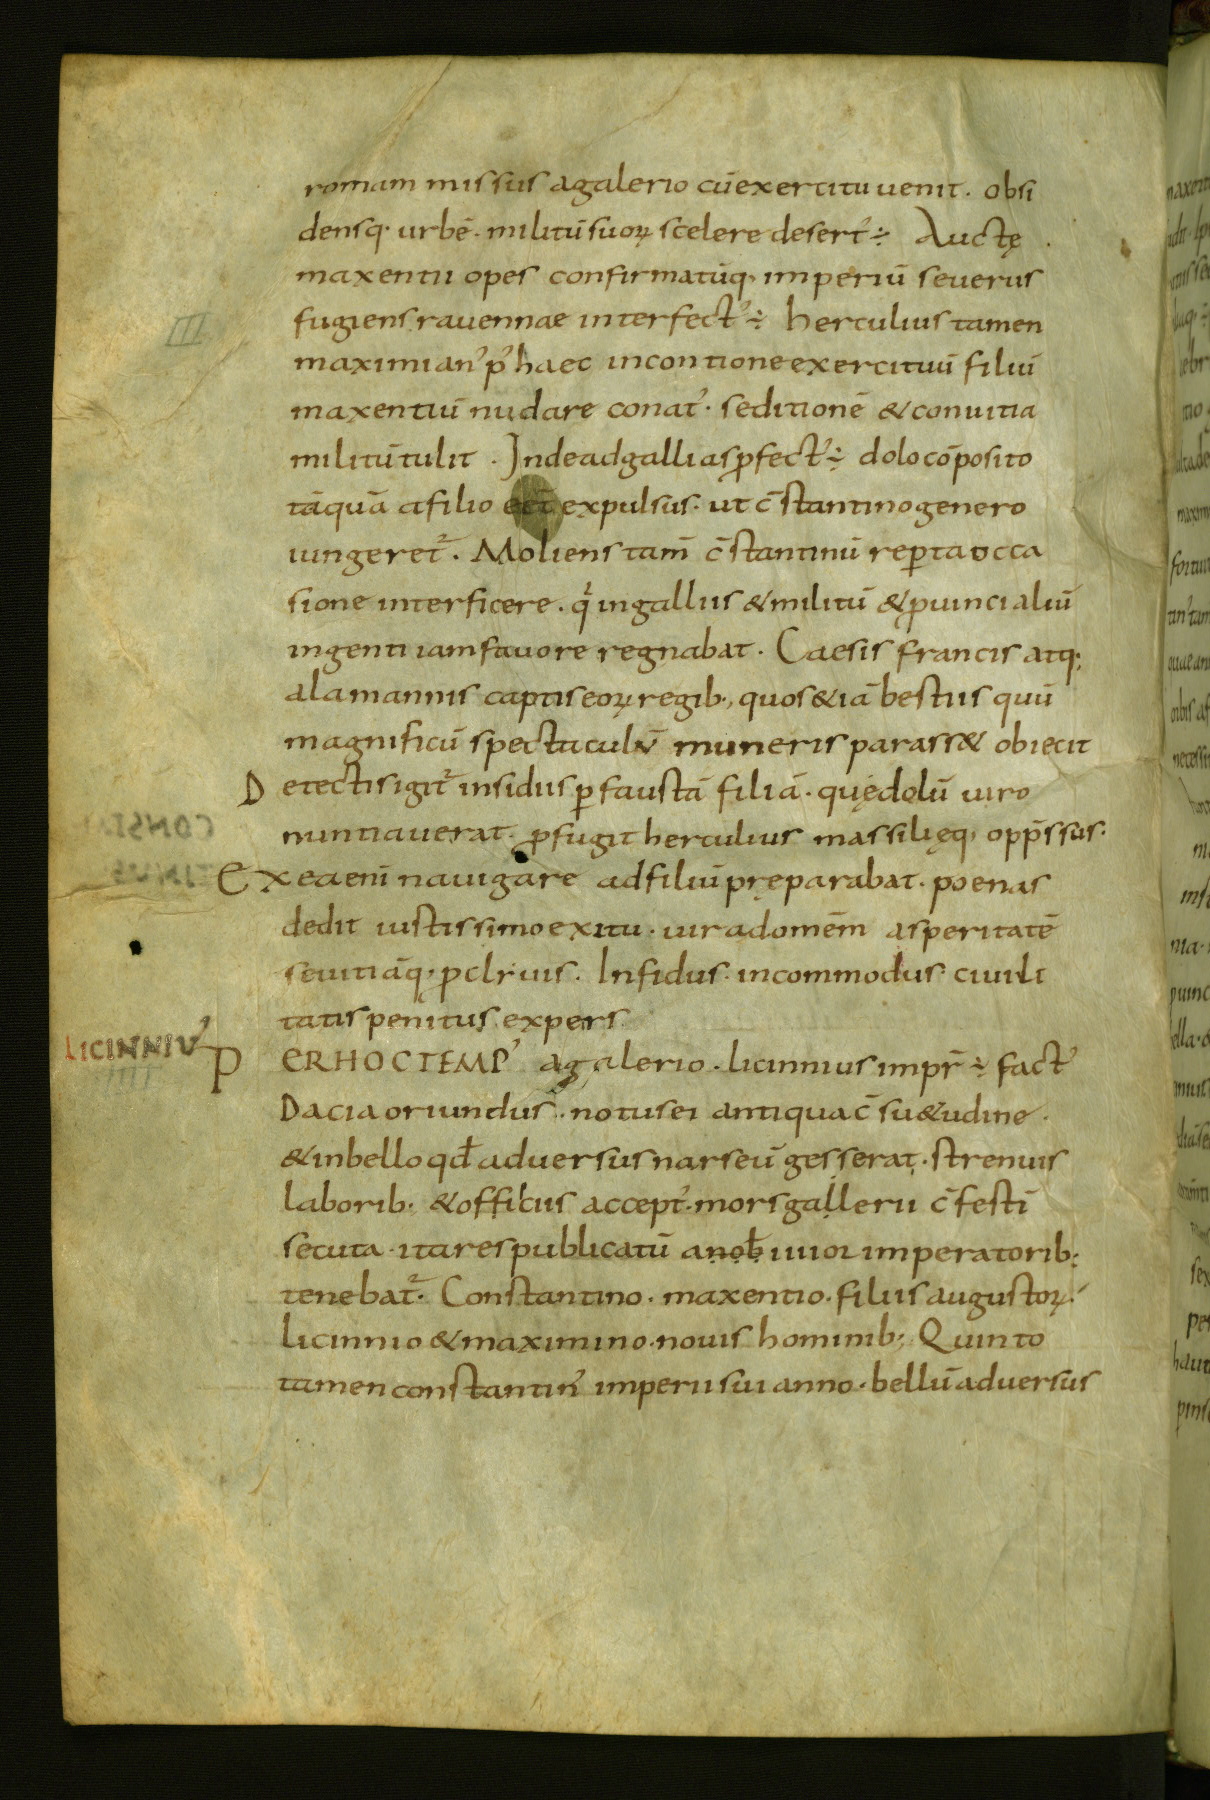 romam missus agalerio cūexercitu uenit. obsi
densq; urbē. militū suoꝝ scelere desert᾽ ÷ Auctę
maxentii opes confirmatūq; imperiū seuerus
fugiens rauennae interfect᾽ ÷ herculius tamen
maximian᾽ p᾽ haec incontione exercituū filiū
maxentiū nudare conat᾽. seditionē & conuitia
militū tulit. Inde adgallias ꝓfect᾽ ÷ dolo cōposito
tāquā afilio eēt expulsus. ut c̄stantino genero
iungeret᾽. Moliens tam̄ c̄stantinū reꝑta occa
sione interficere. q᾽ ingalliis & militū & ꝓuincialiū
ingenti iam fauore regnabat. Caesis francis atq;
alamannis captis eoꝝ regib; quos &iā bestiis quū
magnificū spectaculū muneris parass& obiecit
Detectis igit᾽ insidiis ꝑ faustā filiā. quę dolū uiro
nuntiauerat. ꝓfugit herculius massilięq; opp̄ssus.
Ex ea eni᾽ nauigare adfiliū pręparabat. poenas
dedit iustissimo exitu. uir adom̄em asperitatē
seuitiāq; ꝓcliuis. Infidus. incommodus. ciuili
tatis penitus expers.
LICINNIU᾽
IIII
PER HOC TEMP᾽ agalerio. licinnius impr̄ ÷ fact᾽
Dacia oriundus. notus ei antiqua c̄su&udine.
& inbello qd̄ aduersus narseū gesserat. strenuis
laborib; & officiis accept᾽. mors gallerii c̄festī
secuta. ita res publica tū anob̄ iiiior imperatorib;
tenebat᾽. Constantino. maxentio. filiis augustoꝝ.
licinnio & maximino. nouis hominib; Quinto
tamen constantin᾽ imperii sui anno. bellū aduersus